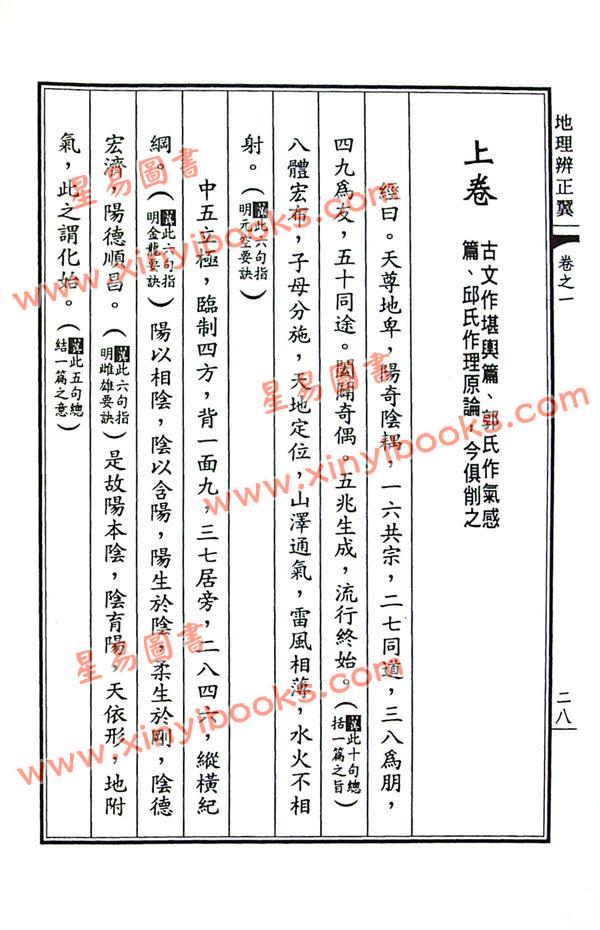 地理辨正翼 卷之一 二八
上卷
古文作堪輿篇、郭氏作氣感
篇、邱氏作理原論，今俱削之
經曰。天尊地卑，陽奇陰耦，一六共宗，二七同道，三八爲朋，
四九爲友，五十同途。闔闢奇偶。五兆生成，流行終始。（翼此十句總括一篇之旨）
八體宏布，子母分施，天地定位，山澤通氣，雷風相薄，水火不相
射。（翼此六句指明元空要訣）
中五立極，臨制四方，背一面九，三七居旁，二八四六，縱橫紀
綱。（翼此六句指明金龍要訣）陽以相陰，陰以含陽，陽生於陰，柔生於剛，陰德
宏濟，陽德順昌。（翼此六句指明雌雄要訣）是故陽本陰，陰育陽，天依形，地附
氣，此之謂化始。（翼此五句總結一篇之意）
星易圖書
www.xinyibooks.com
星易圖書
www.xinyibooks.com
星易圖書
www.xinyibooks.com